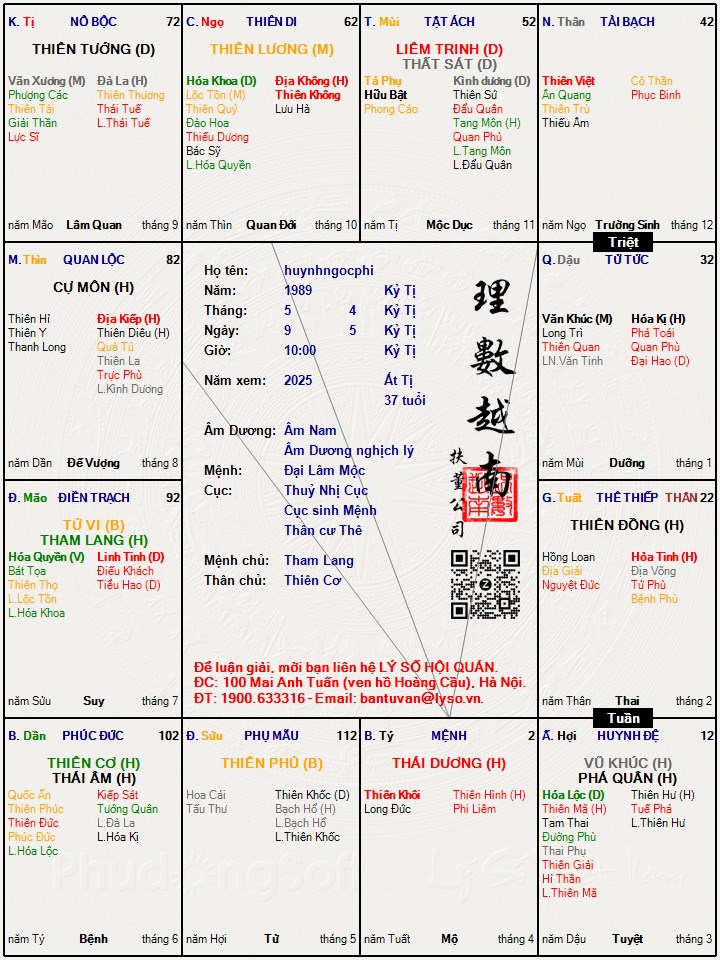 K. Tị NÔ BỘC 72
THIÊN TƯỚNG (D)
Văn Xương (M) Đà La (H)
Phượng Các Thiên Thương
Thiên Tài Thái Tuế
Giải Thần L.Thái Tuế
Lực Sĩ
năm Mão Lâm Quan tháng 9
C. Ngọ THIÊN DI 62
THIÊN LƯƠNG (M)
Hóa Khoa (D) Địa Không (H)
Lộc Tồn (M) Thiên Không
Thiên Quý Lưu Hà
Đào Hoa
Thiếu Dương
Bác Sỹ
L.Hóa Quyền
năm Thìn Quan Đới tháng 10
T. Mùi TẬT ÁCH 52
LIÊM TRINH (D)
THẤT SÁT (D)
Tả Phụ Kình dương (D)
Hữu Bật Thiên Sứ
Phong Cáo Đẩu Quân
Tang Môn (H)
Quan Phủ
L.Tang Môn
L.Đẩu Quân
năm Tị Mộc Dục tháng 11
N. Thân TÀI BẠCH 42
Thiên Việt Cô Thần
Ân Quang Phục Binh
Thiên Trù
Thiếu Âm
năm Ngọ Trường Sinh tháng 12
Triệt
M. Thìn QUAN LỘC 82
CỰ MÔN (H)
Thiên Hỉ Địa Kiếp (H)
Thiên Y Thiên Diêu (H)
Thanh Long Quả Tú
Thiên La
Trực Phù
L.Kình Dương
năm Dần Đế Vượng tháng 8
Họ tên: huynhngocphi
Năm: 1989 Kỷ Tị
Tháng: 5 4 Kỷ Tị
Ngày: 9 5 Kỷ Tị
Giờ: 10:00 Kỷ Tị
Năm xem: 2025 Ất Tị
37 tuổi
Âm Dương: Âm Nam
Âm Dương nghịch lý
Mệnh: Đại Lâm Mộc
Cục: Thuỷ Nhị Cục
Cục sinh Mệnh
Thân cư Thê
Mệnh chủ: Tham Lang
Thân chủ: Thiên Cơ
理數越南
扶董公司
Z
Để luận giải, mời bạn liên hệ LÝ SỐ HỘI QUÁN.
ĐC: 100 Mai Anh Tuấn (ven hồ Hoàng Cầu), Hà Nội.
ĐT: 1900.633316 - Email: bantuvan@lyso.vn.
Q. Dậu TỬ TỨC 32
Văn Khúc (M) Hóa Kị (H)
Long Trì Phá Toái
Thiên Quan Quan Phù
LN.Văn Tinh Đại Hao (D)
năm Mùi Dưỡng tháng 1
Đ. Mão ĐIỀN TRẠCH 92
TỬ VI (B)
THAM LANG (H)
Hóa Quyền (V) Linh Tinh (D)
Bát Tọa Điếu Khách
Thiên Thọ Tiểu Hao (D)
L.Lộc Tồn
L.Hóa Khoa
năm Sửu Suy tháng 7
G. Tuất THÊ THIẾP THÂN 22
THIÊN ĐỒNG (H)
Hồng Loan Hỏa Tinh (H)
Địa Giải Địa Võng
Nguyệt Đức Tử Phù
Bệnh Phù
năm Thân Thai tháng 2
Tuần
B. Dần PHÚC ĐỨC 102
THIÊN CƠ (H)
THÁI ÂM (H)
Quốc Ấn Kiếp Sát
Thiên Phúc Tướng Quân
Thiên Đức L.Đà La
Phúc Đức L.Hóa Kị
L.Hóa Lộc
năm Tý Bệnh tháng 6
Đ. Sửu PHỤ MẪU 112
THIÊN PHỦ (B)
Hoa Cái Thiên Khốc (D)
Tấu Thư Bạch Hổ (H)
L.Bạch Hổ
L.Thiên Khốc
năm Hợi Tử tháng 5
B. Tý MỆNH 2
THÁI DƯƠNG (H)
Thiên Khôi Thiên Hình (H)
Long Đức Phi Liêm
năm Tuất Mộ tháng 4
Ấ. Hợi HUYNH ĐỆ 12
VŨ KHÚC (H)
PHÁ QUÂN (H)
Hóa Lộc (D) Thiên Hư (H)
Thiên Mã (H) Tuế Phá
Tam Thai L.Thiên Hư
Đường Phù
Thai Phụ
Thiên Giải
Hỉ Thần
L.Thiên Mã
năm Dậu Tuyệt tháng 3